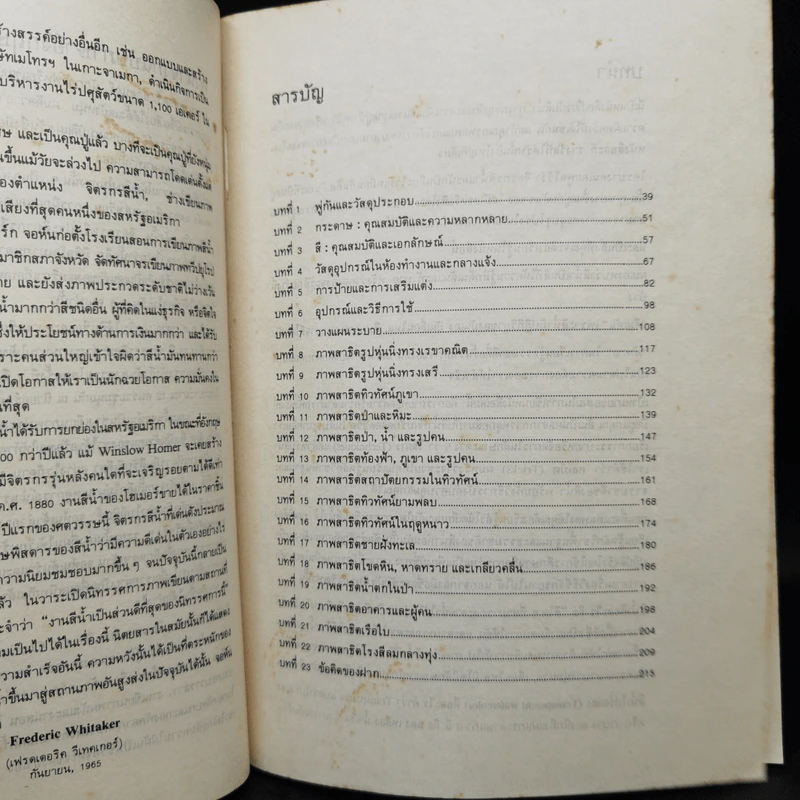 ้างสรรค์อย่างอื่นอีก เช่น ออกแบบและสร้าง
ษัทเมโทรฯ ในเกาะจาเมกา, ดำเนินกิจการเป็น
บริหารงานไร่ปศุสัตว์ขนาด 1,100 เอเคอร์ ใน
ษ และเป็นคุณปู่แล้ว บางทีจะเป็นคุณปู่ที่ยังหนุ่ม
นขึ้นแม้วัยจะล่วงไป ความสามารถโดดเด่นตั้งแต่
องตำแหน่ง จิตรกรสีน้ำ, ช่างเขียนภาพ
เสียงที่สุดคนหนึ่งของสหรัฐอเมริกา
ร์ก จอห์นก่อตั้งโรงเรียนสอนการเขียนภาพสีน้ำ
มาชิกสภาจังหวัด จัดทัศนาจรเขียนภาพทวีปยุโรป
าย และยังส่งภาพประกวดระดับชาติไม่ว่างเว้น
น้ำมากกว่าสีชนิดอื่น ผู้ที่คิดในแง่ธุรกิจ หรือจิตใจ
ซึ่งให้ประโยชน์ทางด้านการเงินมากกว่า และได้รับ
ราะคนส่วนใหญ่เข้าใจผิดว่าสีน้ำมันทนทานกว่า
เปิดโอกาสให้เราเป็นนักฉวยโอกาส ความมั่นคงใน
ที่สุด
น้ำได้รับการยกย่องในสหรัฐอเมริกา ในขณะที่อังกฤษ
00 กว่าปีแล้ว แม้ Winslow Homer จะเคยสร้าง
มีจิตรกรรุ่นหลังคนใดที่จะเจริญรอยตามได้ดีเท่า
ค.ศ. 1880 งานสีน้ำของโฮเมอร์ขายได้ในราคาชิ้น
ปีแรกของศตวรรษนี้ จิตรกรสีน้ำที่เด่นดังประมาณ
ษพิสดารของสีน้ำว่ามีความดีเด่นในตัวเองอย่างไร
ความนิยมชมชอบมากขึ้นๆ จนปัจจุบันนี้กลายเป็น
ล้ว ในวาระเปิดนิทรรศการภาพเขียนตามสถานที่
ะจำว่า "งานสีน้ำเป็นส่วนดีที่สุดของนิทรรศการนี้"
มเป็นไปได้ในเรื่องนี้ นิตยสารในสมัยนั้นก็ได้แสดง
วามสำเร็จอันนี้ ความหวังนั้นได้เป็นที่ตระหนักของ
้ำขึ้นมาสู่สถานภาพอันสูงส่งในปัจจุบันได้นั้น จอห์น
Frederic Whitaker
(เฟรดเดอริค วีเทคเกอร์)
กันยายน, 1965
สารบัญ
บทที่ 1 พู่กันและวัสดุประกอบ 39
บทที่ 2 กระดาษ : คุณสมบัติและความหลากหลาย 51
บทที่ 3 สี : คุณสมบัติและเอกลักษณ์ 57
บทที่ 4 วัสดุอุปกรณ์ในห้องทำงานและกลางแจ้ง 67
บทที่ 5 การป้ายและการเสริมแต่ง 82
บทที่ 6 อุปกรณ์และวิธีการใช้ 98
บทที่ 7 วางแผนระบาย 108
บทที่ 8 ภาพสาธิตรูปหุ่นนิ่งทรงเรขาคณิต 117
บทที่ 9 ภาพสาธิตรูปหุ่นนิ่งทรงเสรี 123
บทที่ 10 ภาพสาธิตทิวทัศน์ภูเขา 132
บทที่ 11 ภาพสาธิตป่าและหิมะ 139
บทที่ 12 ภาพสาธิตป่า, น้ำ และรูปคน 147
บทที่ 13 ภาพสาธิตท้องฟ้า, ภูเขา และรูปคน 154
บทที่ 14 ภาพสาธิตสถาปัตยกรรมในทิวทัศน์ 161
บทที่ 15 ภาพสาธิตทิวทัศน์ยามพลบ 168
บทที่ 16 ภาพสาธิตทิวทัศน์ในฤดูหนาว 174
บทที่ 17 ภาพสาธิตชายฝั่งทะเล 180
บทที่ 18 ภาพสาธิตโขดหิน, หาดทราย และเกลียวคลื่น 186
บทที่ 19 ภาพสาธิตน้ำตกในป่า 192
บทที่ 20 ภาพสาธิตอาคารและผู้คน 198
บทที่ 21 ภาพสาธิตเรือใบ 204
บทที่ 22 ภาพสาธิตโรงสีลมกลางทุ่ง 209
บทที่ 23 ข้อคิดของฝาก 213